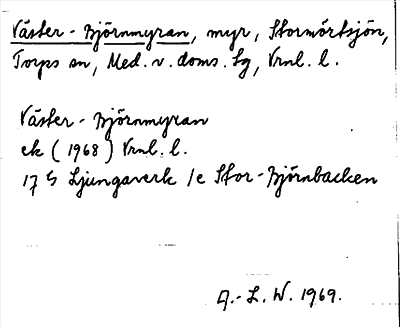 Väster-Björnmyran, myr, Stormörtsjön,
Torps sn, Med. v. doms. tg, Vrnl. l.
Väster-Björnmyran
ek (1968) Vrnl. l.
17 G Ljungaverk /e Stor-Björnbacken
A.-L. W. 1969.